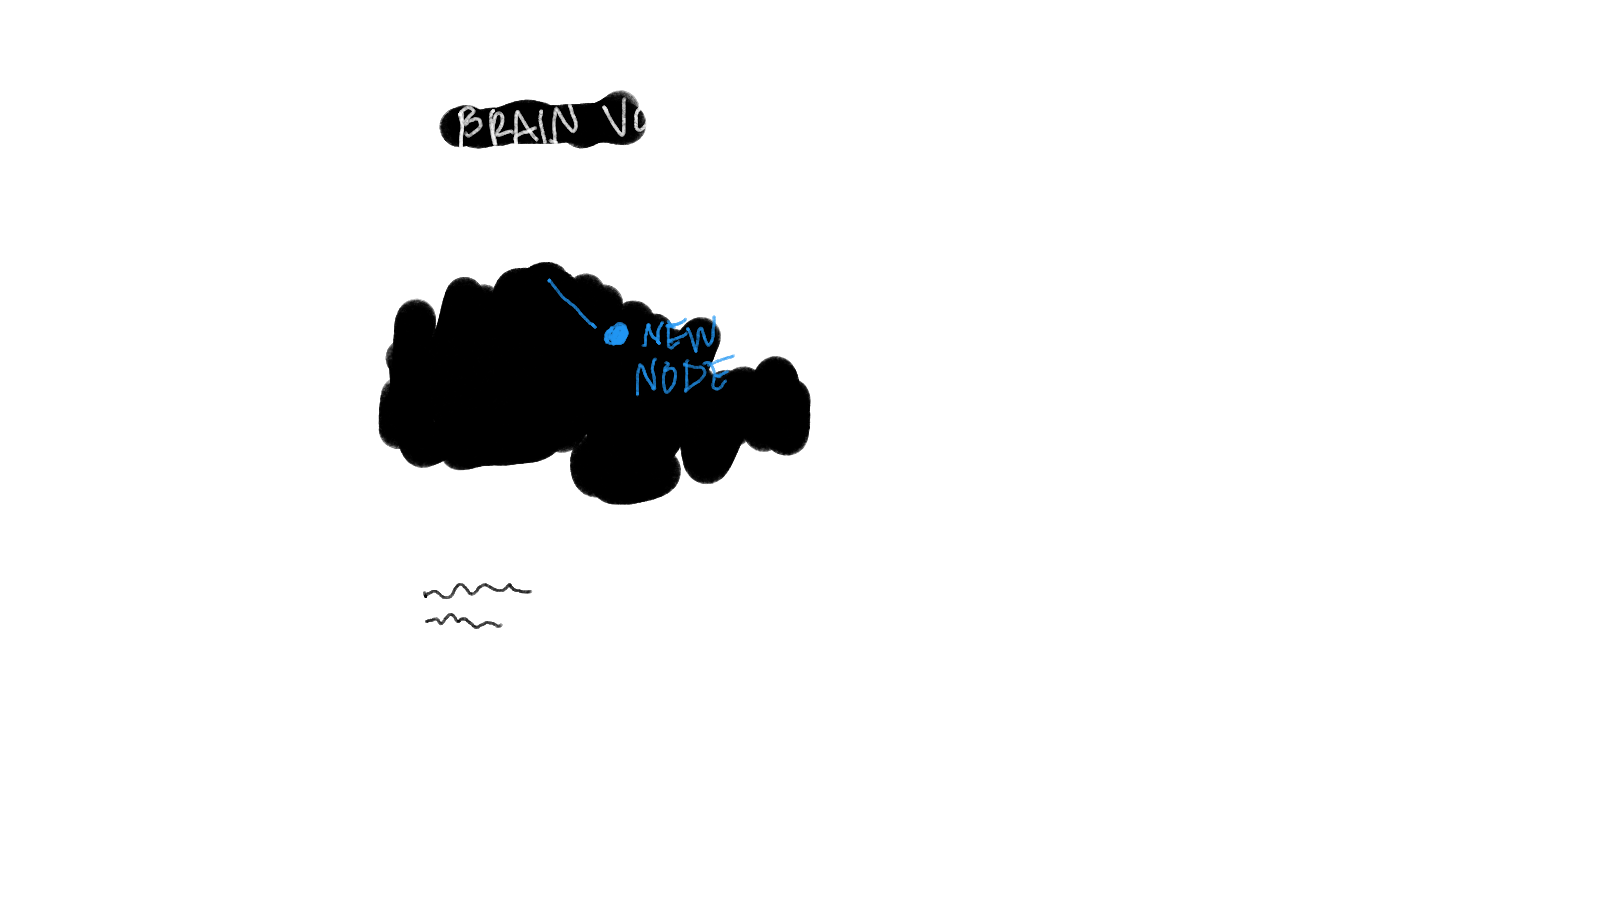 BRAIN
NEW
NODE